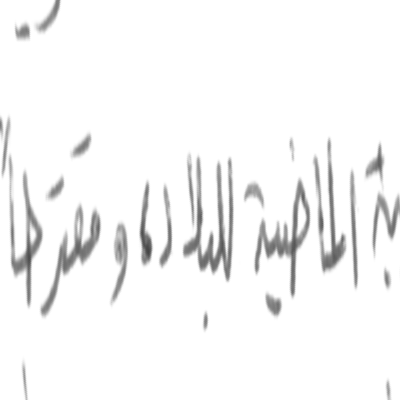 الماضية للبلاد، ومقترحاً